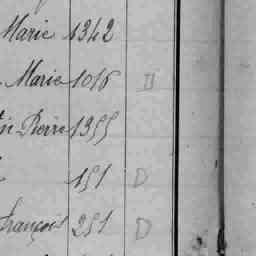 Marie 1342
Marie 1016 D
Pierre 1355
151 D
François 251 D